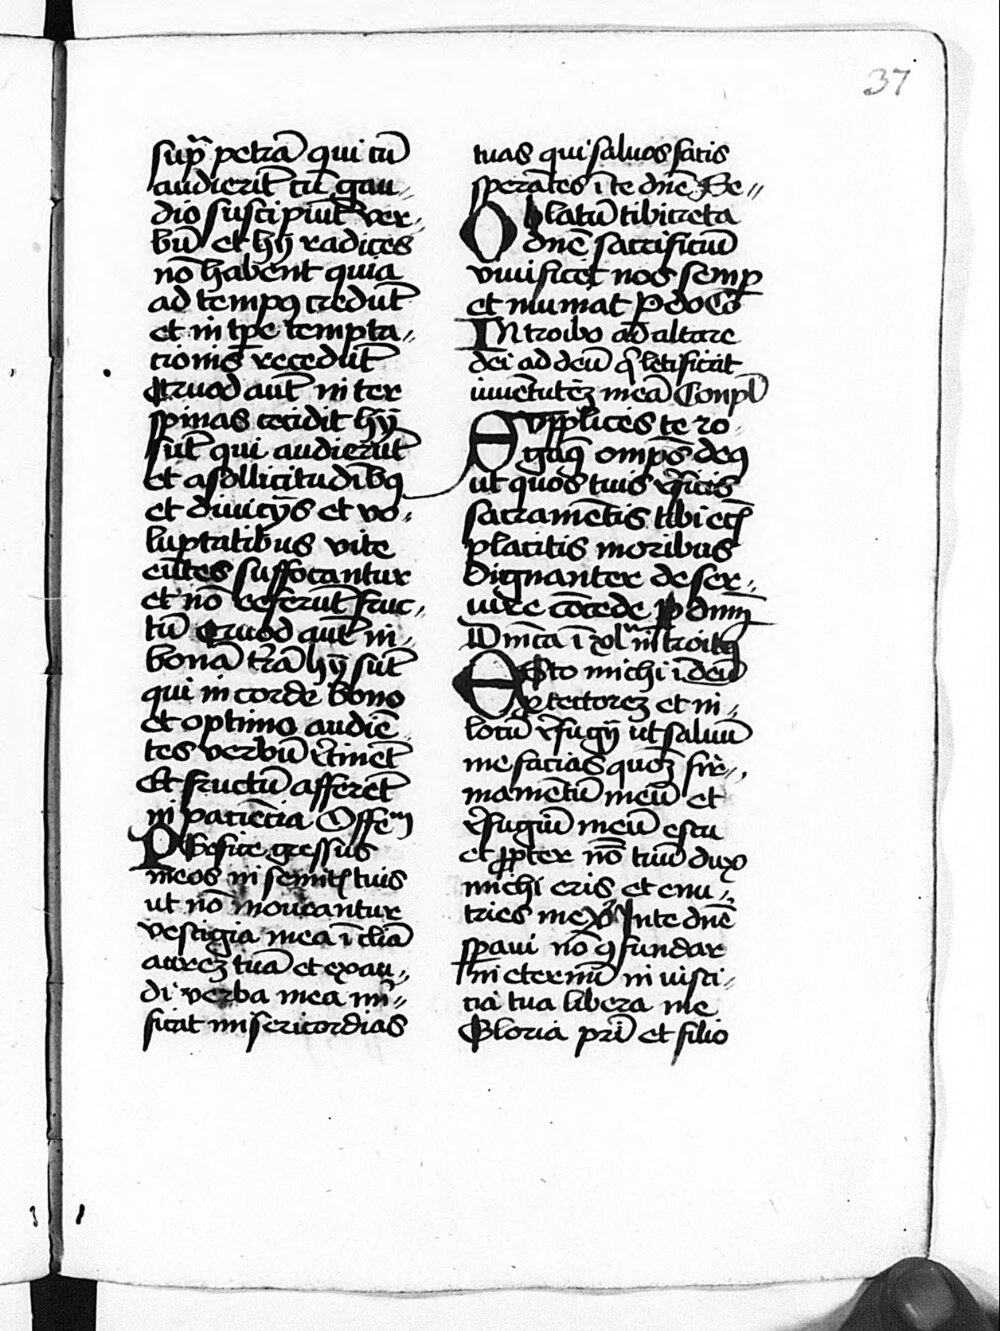 37
sup̃ petrã qui cũ
audierĩt cũ gau⸗
dio suscipiũt ver⸗
bũ et hij radices
nõ habent quia
ad tempꝰ credũt
et in tꝑe tempta⸗
tionis recedũt
Quod aũt in ter
spinas cecidit hij
sũt qui audierũt
et asollicitudĩbꝰ
et diuicijs et vo⸗
luptatibus vite
eũtes suffocantur
et nõ referũt fruc⸗
tũ Quod aũt in⸗
bonã t̃rã hij sũt
qui in corde bono
et optimo audiẽ
tes verbũ r̃tinẽt
Et fructũ afferẽt
in paciẽcia Offẽ
Perfice gressus
meos in semitis tuis
ut nõ moueantur
vestigia mea ĩclĩa
aureꝫ tuã et exau⸗
di verba mea mi⸗
ficat misericordias
tuas qui saluos facis
sperãtes ĩ te dñe Se⸗
Oblatũ tibi creta
dñe sacrificiũ
viuificet nos semꝑ
et muniat P do Cõ
Introibo ad altare
dei ad deũ q̃ letificat
iuuẽtutẽ meã Conpl
Supplices te ro⸗
gaꝰ omps̃ deꝰ
ut quos tuis r̃ficis
sacramẽtis tibi etiã
placitis moribus
dignanter deser⸗
uire cõcede P dnm̃
Dñica ĩ xl ĩntroitꝰ
Esto michi ĩ deũ
ꝓtectoreꝫ et in⸗
locũ r̃fugij ut saluũ
me facias quoꝫ fir⸗
mamẽtũ meũ et
r̃fugiũ meũ es tu
et ꝓpter nõ tuũ dux
michi eris et enu⸗
tries me v̾ In te dñe
sp̃aui nõ ꝯfundar
in eternũ in iusti⸗
cia tua libera me
Gloria pr̃i et filio